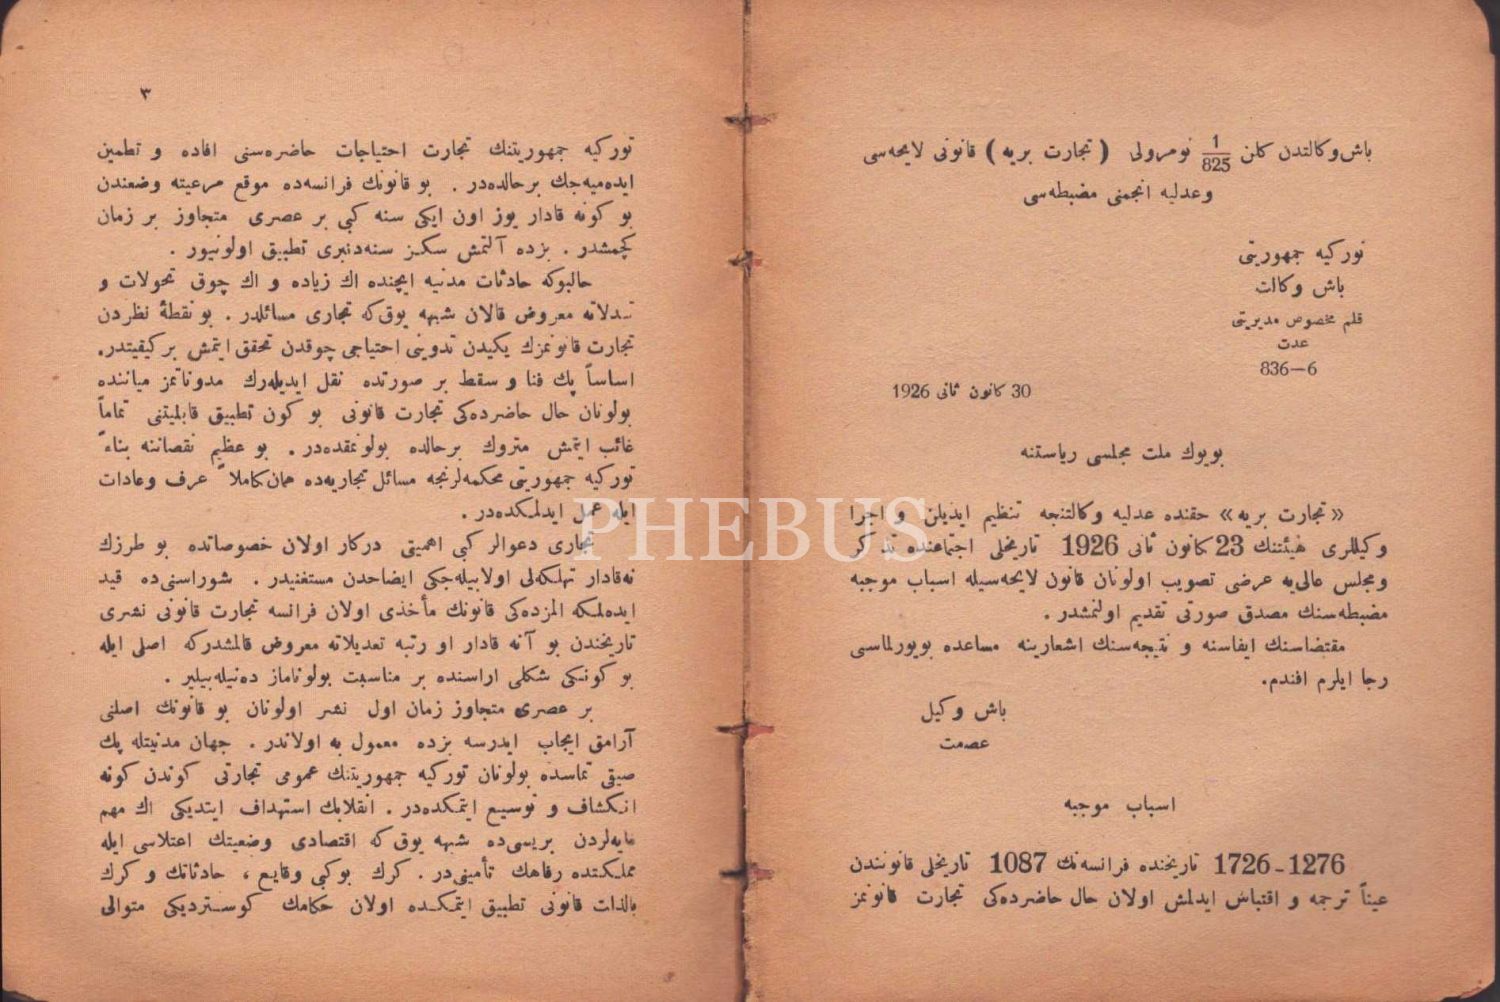 باش وكالتدن كلن 1/825 نومرولى ( تجارت بريه ) قانونى لايحه‌سى
وعدليه انجمنى مضبطه‌سى
توركيه جمهوريتى
باش وكالت
قلم مخصوص مديريتى
عدت
836—6
30 كانون ثانى 1926
بويوك ملت مجلسى رياستنه
«تجارت بريه» حقنده عدليه وكالتنجه تنظيم ايديلن و اجرا
وكيللرى هيئتنك 23 كانون ثانى 1926 تاريخلى اجتماعنده تذكر
ومجلس عالى‌يه عرضى تصويب اولونان قانون لايحه‌سيله اسباب موجبه
مضبطه‌سنك مصدق صورتى تقديم اولنمشدر .
مقتضاسنك ايفاسنه و نتيجه‌سنك اشعارينه مساعده بويورلماسى
رجا ايلرم افندم.
باش وكيل
عصمت
اسباب موجبه
1276-1726 تاريخنده فرانسه‌نك 1087 تاريخلى قانونندن
عيناً ترجمه و اقتباس ايدلمش اولان حال حاضرده‌كى تجارت قانونمز
٣
توركيه جمهوريتنك تجارت احتياجات حاضره‌سنى افاده و تطمين
ايده‌ميه‌جك برحالده‌در . بو قانونك فرانسه‌ده موقع مرعيته وضعندن
بو كونه قادار يوز اون ايكى سنه كبى بر عصرى متجاوز بر زمان
كچمشدر . بزده آلتمش سكز سنه‌دنبرى تطبيق اولونيور .
حالبوكه حادثات مدنيه ايچنده اك زياده و اك چوق تحولات و
تبدلاته معروض قالان شبهه يوق‌كه تجارى مسائلدر . بو نقطهٔ نظردن
تجارت قانونمزك يكيدن تدوينى احتياجى چوقدن تحقق ايتمش بركيفيتدر.
اساساً پك فنا و سقط بر صورتده نقل ايديله‌رك مدوناتمز مياننده
بولونان حال حاضرده‌كى تجارت قانونى بو كون تطبيق قابليتنى تماماً
غائب ايتمش متروك برحالده بولونمقده‌در . بو عظيم نقصاننه بناءً
توركيه جمهوريتى محكمه‌لرنجه مسائل تجاريه‌ده همان كاملاً عرف وعادات
ايله عمل ايدلمكده‌در .
تجارى دعوالر كبى اهميتى دركار اولان خصوصاتده بو طرزك
نه‌قادار تهلكه‌لى اولابيله‌جكى ايضاحدن مستغنيدر . شوراسنى‌ده قيد
ايده‌لمكه المزده‌كى قانونك مأخذى اولان فرانسه تجارت قانونى نشرى
تاريخندن بو آنه قادار او رتبه تعديلاته معروض قالمشدركه اصلى ايله
بو كونكى شكلى اراسنده بر مناسبت بولوناماز ده‌نيله‌بيلير .
بر عصرى متجاوز زمان اول نشر اولونان بو قانونك اصلنى
آرامق ايجاب ايدرسه بزده معمول به اولاندر . جهان مدنيتله پك
صيقى تماسده بولونان توركيه جمهوريتنك عمومى تجارتى كوندن كونه
انكشاف و توسيع ايتمكده‌در . انقلابك استهداف ايتديكى اك مهم
غايه‌لردن بريسى‌ده شبهه يوق‌كه اقتصادى وضعيتك اعتلاسى ايله
مملكتده رفاهك تأمينى‌در . كرك بوكبى وقايع ، حادثاتك و كرك
بالذات قانونى تطبيق ايتمكده اولان حكامك كوستردیكى متوالى
PHEBUS